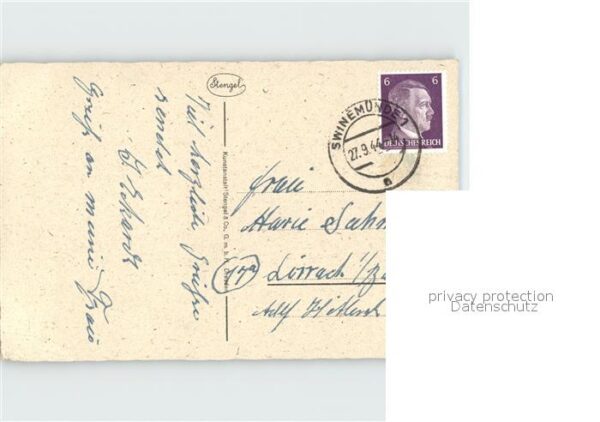 Stengel
Viel herzliche Grüße
sendet
Eckardt
Gruß an meine Frau
Kunstanstalt Stengel & Co., G. m. b. H., Dresden
6 6
DEUTSCHES REICH
SWINEMÜNDE 1
27.9.44
Frau
Marie
(17a)
Lörrach i/Ba
Adolf Hitlerstr
privacy protection
Datenschutz